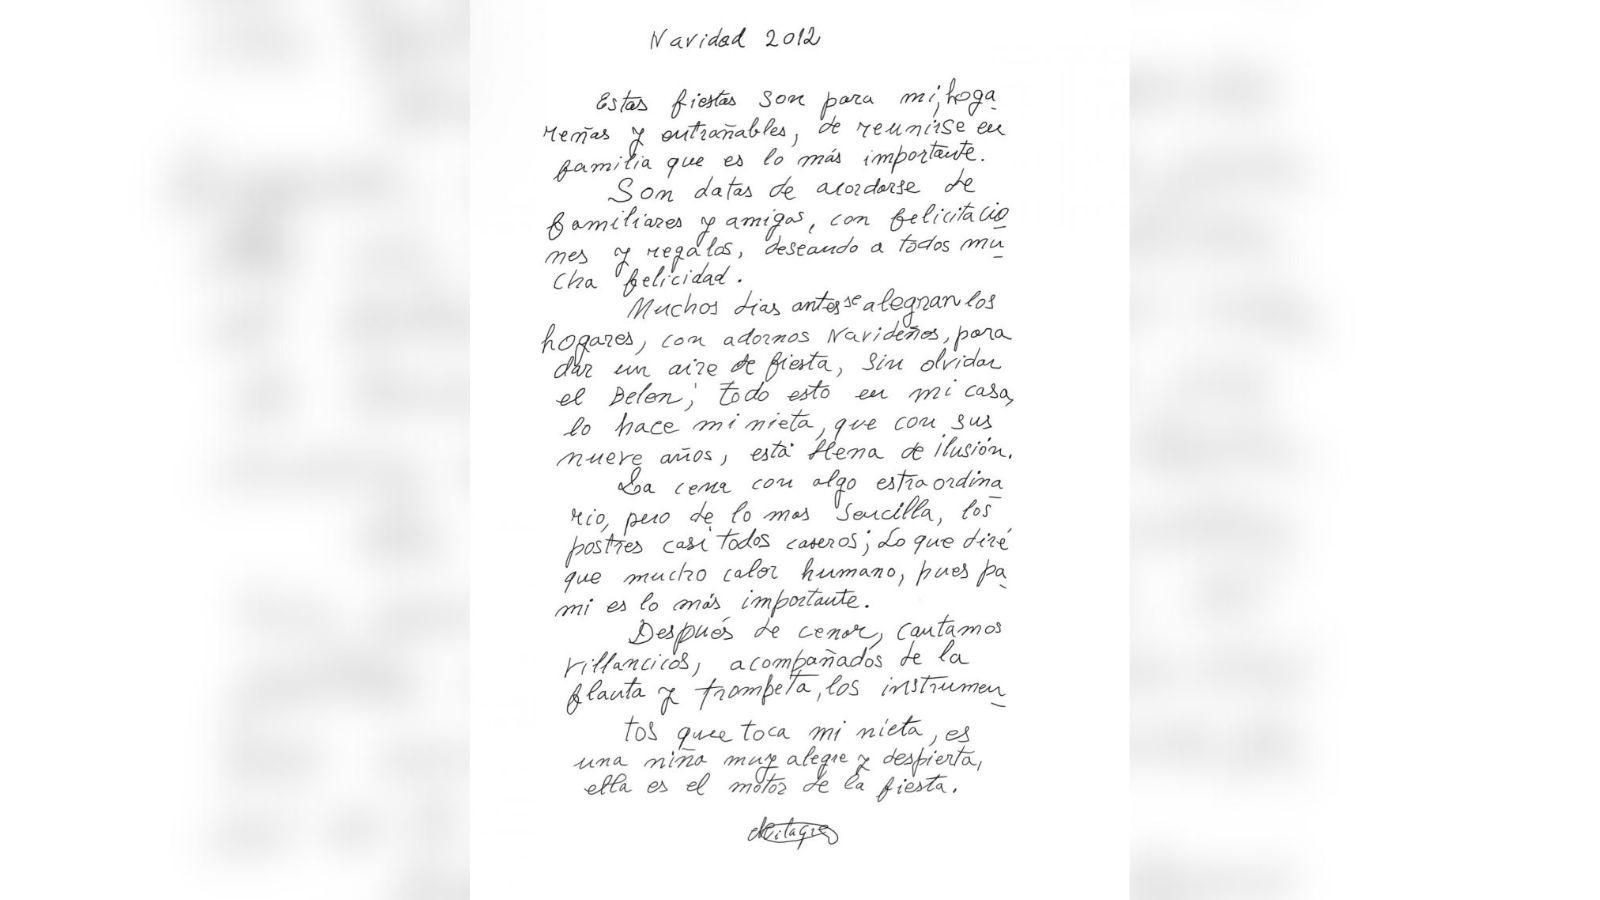 Navidad 2012
Estas fiestas son para mi, hoga
reñas y entrañables, de reunirse en
familia que es lo más importante.
Son datas de acordarse de
familiares y amigas, con felicitacio
nes y regalos, deseando a todos mu
cha felicidad.
Muchos dias antes se alegran los
hogares, con adornos Navideños, para
dar un aire de fiesta, sin olvidar
el Belen; todo esto en mi casa,
lo hace mi nieta, que con sus
nueve años, está llena de ilusión.
La cena con algo estraordina
rio, pero de lo mas sencilla, los
postres casi todos caseros; Lo que diré
que mucho calor humano, pues pa
mi es lo más importante.
Después de cenar, cantamos
villancicos, acompañados de la
flauta y trompeta, los instrumen
tos que toca mi nieta, es
una niña muy alegre y despierta,
ella es el motor de la fiesta.
Milagros